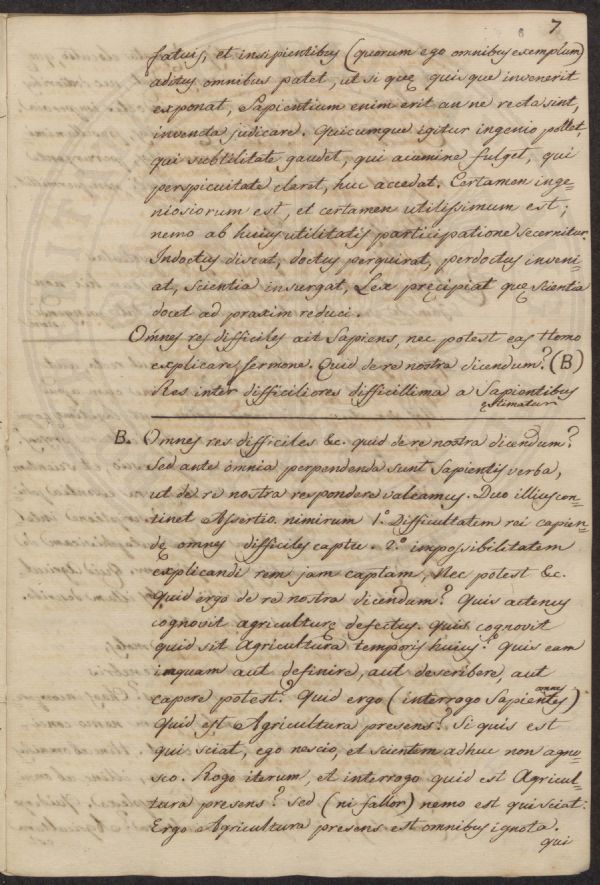 7
fatuis, et insipientibus (quorum ego omnibus exemplum)
aditus omnibus patet, ut si quę quisque invenerit
exponat, Sapientium enim erit an ne recta sint,
inventa judicare. Quicumque igitur ingenio pollet,
qui subtilitate gaudet, qui acumine fulget, qui
perspicuitate claret, huc accedat. Certamen inge-
niosiorum est, et certamen utilissimum est;
nemo ab huius utilitatis participatione secernitur.
Indoctus discat, doctus perquirat, perdoctus inveni-
at, scientia insurgat, Lex pręcipiat quę scientia
docet ad praxim reduci.
Omnes res difficiles ait Sapiens, nec potest eas Homo
explicare sermone. Quid de re nostra dicendum? (B)
Res inter difficiliores difficillima a Sapientibus
ęstimatur
B. Omnes res difficiles &c. quid de re nostra dicendum?
Sed ante omnia perpendenda sunt Sapientis verba,
ut de re nostra respondere valeamus. Duo illius con-
tinet Assertio. nimirum 1.º Difficultatem rei capien-
dę omnes difficiles captu. 2.º impossibilitatem
explicandi rem jam captam, Nec potest &c.
Quid ergo de re nostra dicendum? Quis actenus
cognovit agriculturę defectus. Quis cognovit
quid sit Agricultura temporis huius? Quis eam
inquam aut definire, aut describere, aut
capere potest? Quid ergo (interrogo Sapientes omnes)
Quid est Agricultura presens? Si quis est
qui sciat, ego nescio, et scientem adhuc non agno-
sco. Rogo iterum, et interrogo quid est Agricul-
tura presens? Sed (ni fallor) nemo est qui sciat:
Ergo Agricultura presens est omnibus ignota.
qui